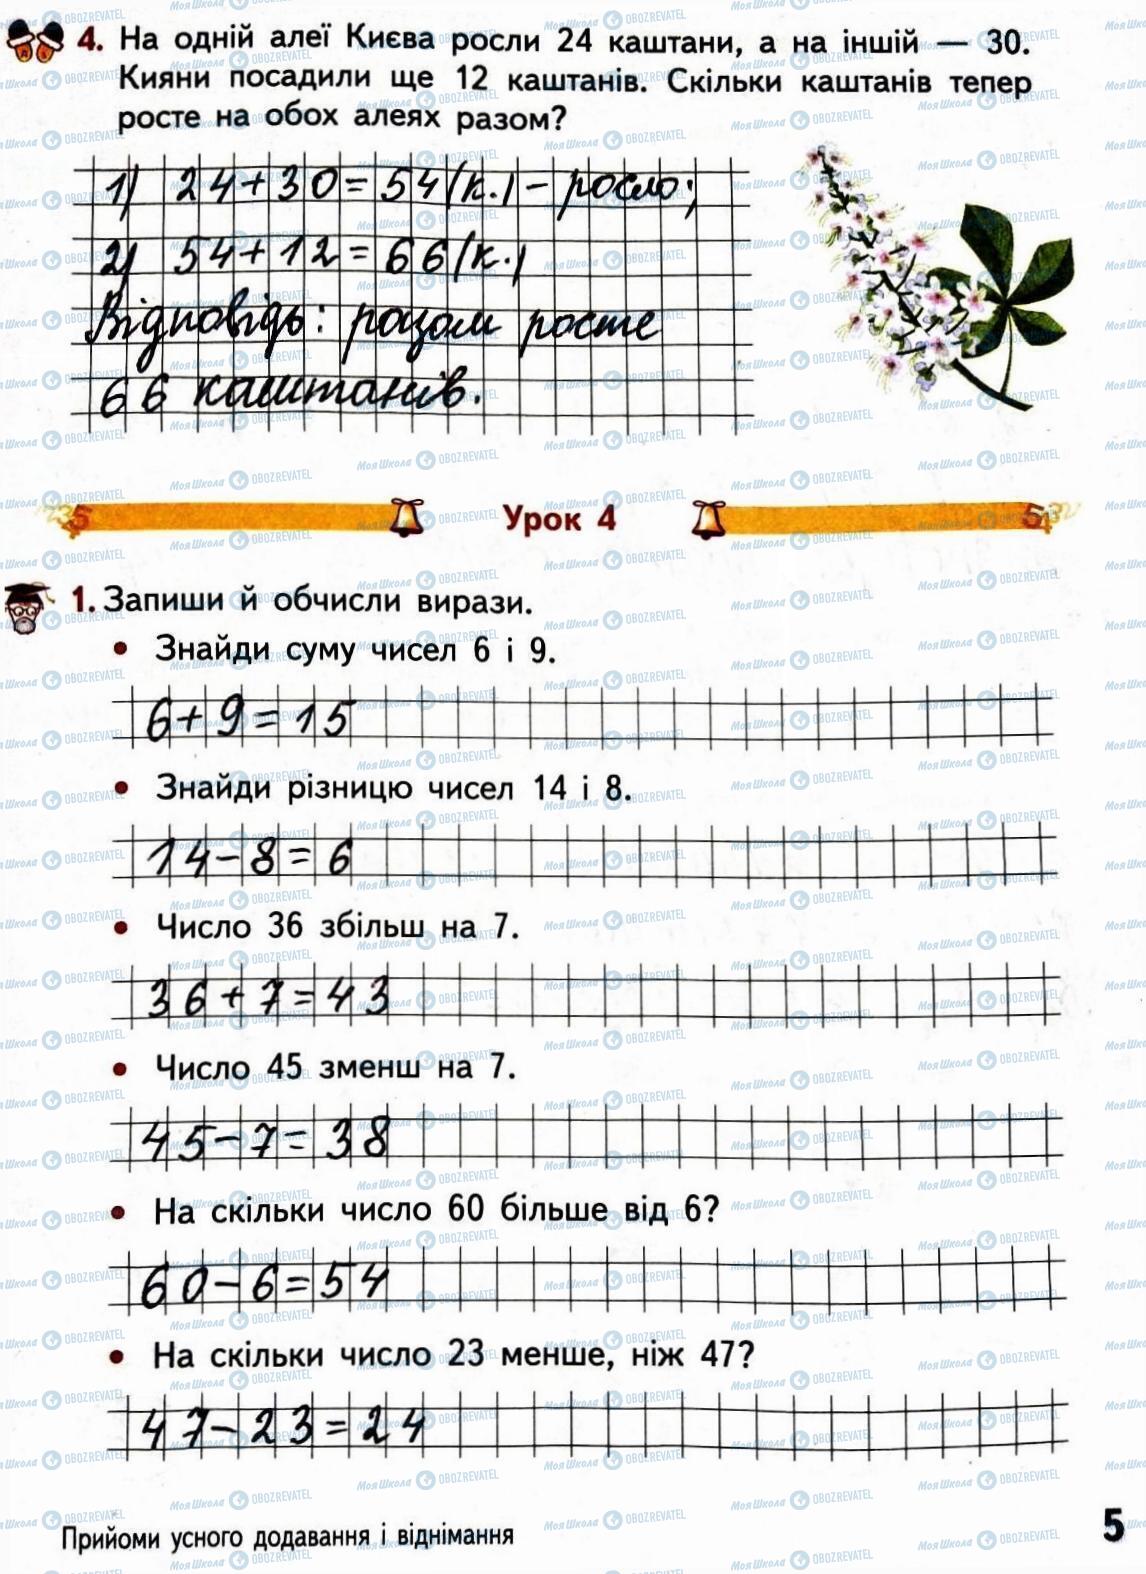 4. На одній алеї Києва росли 24 каштани, а на іншій — 30.
Кияни посадили ще 12 каштанів. Скільки каштанів тепер
росте на обох алеях разом?
1) 24+30=54(к.) - росло;
2) 54+12=66(к.)
Відповідь: разом росте
66 каштанів.
Урок 4
1. Запиши й обчисли вирази.
• Знайди суму чисел 6 і 9.
6+9=15
• Знайди різницю чисел 14 і 8.
14-8=6
• Число 36 збільш на 7.
36+7=43
• Число 45 зменш на 7.
45-7=38
• На скільки число 60 більше від 6?
60-6=54
• На скільки число 23 менше, ніж 47?
47-23=24
Прийоми усного додавання і віднімання
5